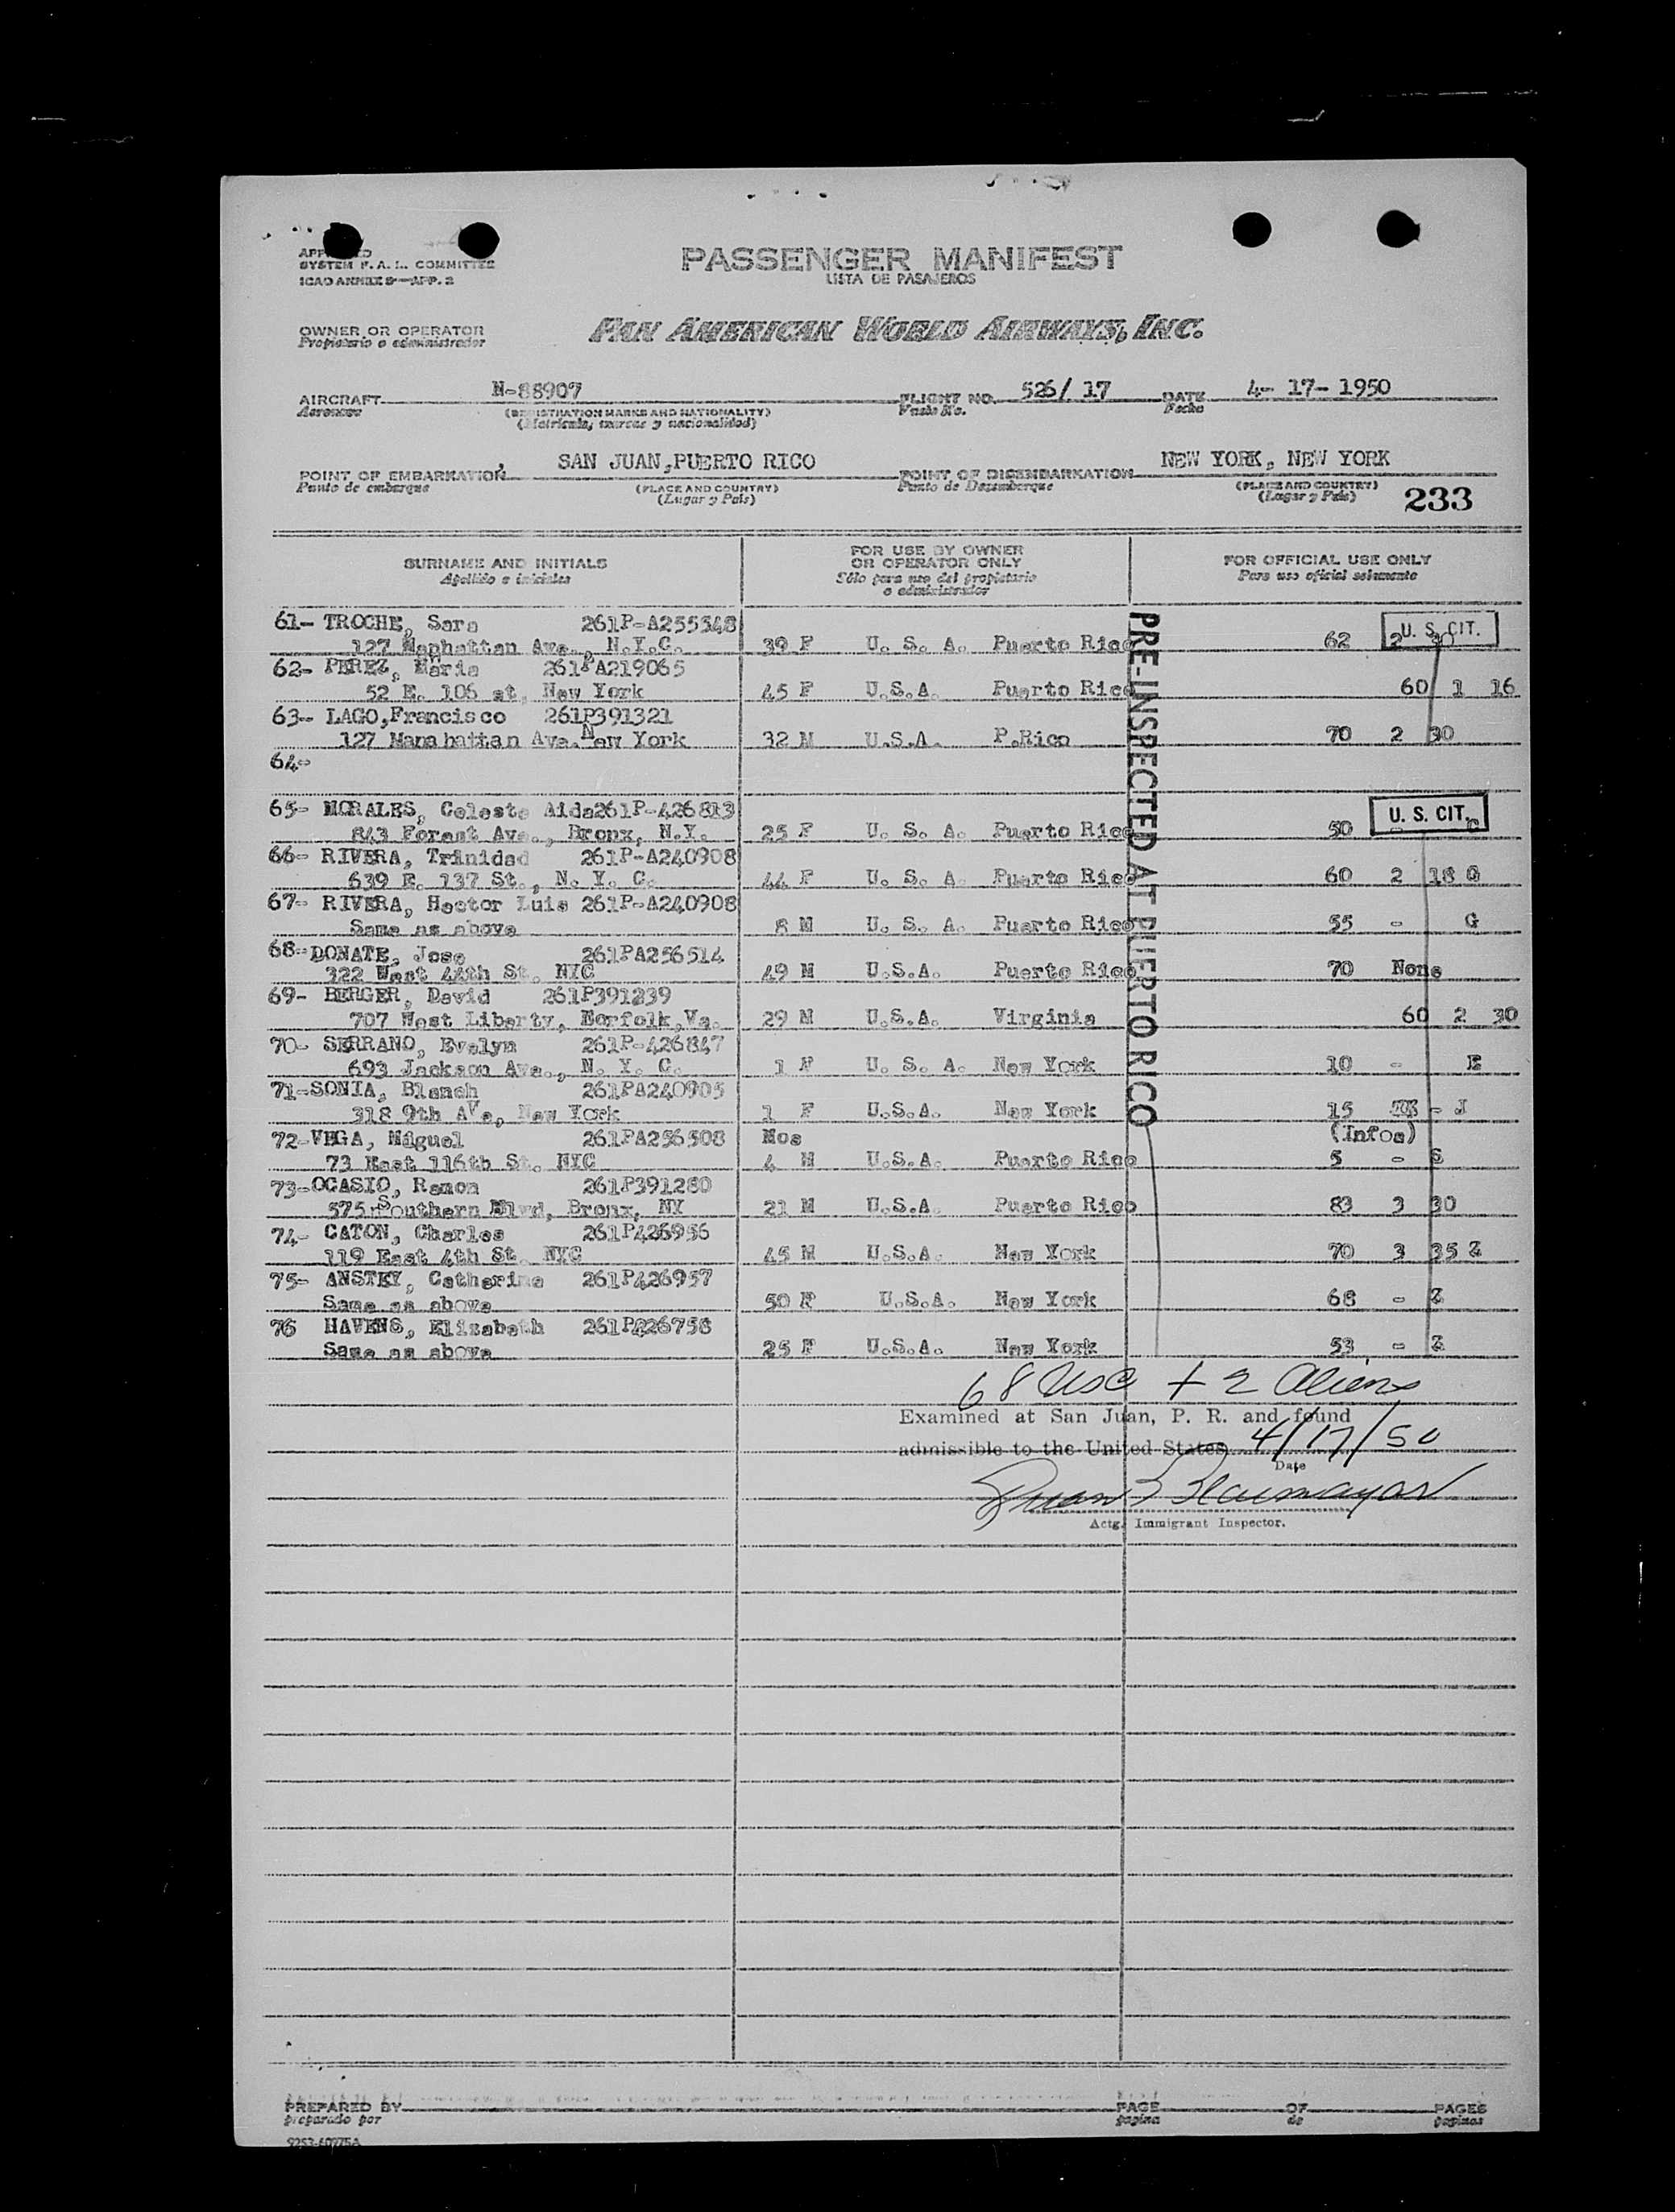 SYSTEM F. A. L. COMMITTEE
ICAO ANNEX 9—APP. 2
PASSENGER MANIFEST
LISTA DE PASAJEROS
OWNER OR OPERATOR
Propietario o administrador
PAN AMERICAN WORLD AIRWAYS, INC.
AIRCRAFT N-88907 FLIGHT NO. 526/ 17 DATE 4- 17- 1950
Aeronave (REGISTRATION MARKS AND NATIONALITY) Vuelo No. Fecha
(Matricula, marcas y nacionalidad)
POINT OF EMBARKATION SAN JUAN,PUERTO RICO POINT OF DISEMBARKATION NEW YORK, NEW YORK
Punto de embarque (PLACE AND COUNTRY) Punto de Desembarque (PLACE AND COUNTRY)
(Lugar y Pais) (Lugar y Pais) 233
SURNAME AND INITIALS FOR USE BY OWNER OR OPERATOR ONLY FOR OFFICIAL USE ONLY
Apellido e iniciales Sólo para uso del propietario o administrador Para uso oficial solamente
PRE-INSPECTED AT PUERTO RICO
61- TROCHE, Sara 261P-A255348 U. S. CIT.
127 Manhattan Ave., N.Y.C. 39 F U. S. A. Puerto Rico 62 2 30
62- PEREZ, Maria 261PA219065
52 E. 106 st, New York 45 F U.S.A. Puerto Rico 60 1 16
63- LAGO,Francisco 261P391321
127 Manahattan Ave.New York 32 M U.S.A. P.Rico 70 2 30
64-
65- MORALES, Celeste Aida261P-426813 U. S. CIT.
843 Forest Ave., Bronx, N.Y. 25 F U. S. A. Puerto Rico 50 -
66- RIVERA, Trinidad 261P-A240908
639 E. 137 St., N. Y. C. 44 F U. S. A. Puerto Rico 60 2 18 G
67- RIVERA, Hector Luis 261P-A240908
Same as above 8 M U. S. A. Puerto Rico 55 - G
68-DONATE, Jose 261PA256514
322 West 44th St. NYC 49 M U.S.A. Puerto Rico 70 None
69- BERGER, David 261P391239
707 West Liberty, Norfolk,Va. 29 M U.S.A. Virginia 60 2 30
70- SERRANO, Evelyn 261P-426847
693 Jackson Ave., N. Y. C. 1 F U. S. A. New York 10 - E
71-SONIA, Blanch 261PA240905
318 9th Ave, New York 1 F U.S.A. New York 15 - J
72-VEGA, Miguel 261PA256508 Mos (Infos)
73 East 116th St. NYC 4 M U.S.A. Puerto Rico 5 - S
73-OCASIO, Ramon 261P391280
575 Southern Blvd, Bronx, NY 21 M U.S.A Puerto Rico 83 3 30
74- CATON, Charles 261P426956
119 East 4th St. NYC 45 M U.S.A. New York 70 3 35 Z
75- ANSTEY, Catherine 261P426957
Same as above 50 F U.S.A. New York 68 - Z
76 HAVENS, Elizabeth 261P426758
Same as above 25 F U.S.A. New York 53 - Z
68 USC + 2 Aliens
Examined at San Juan, P. R. and found
admissible to the United States 4/17/50
Date
Juan
Actg. Immigrant Inspector.
PREPARED BY PAGE OF PAGES
preparado por pagina de paginas